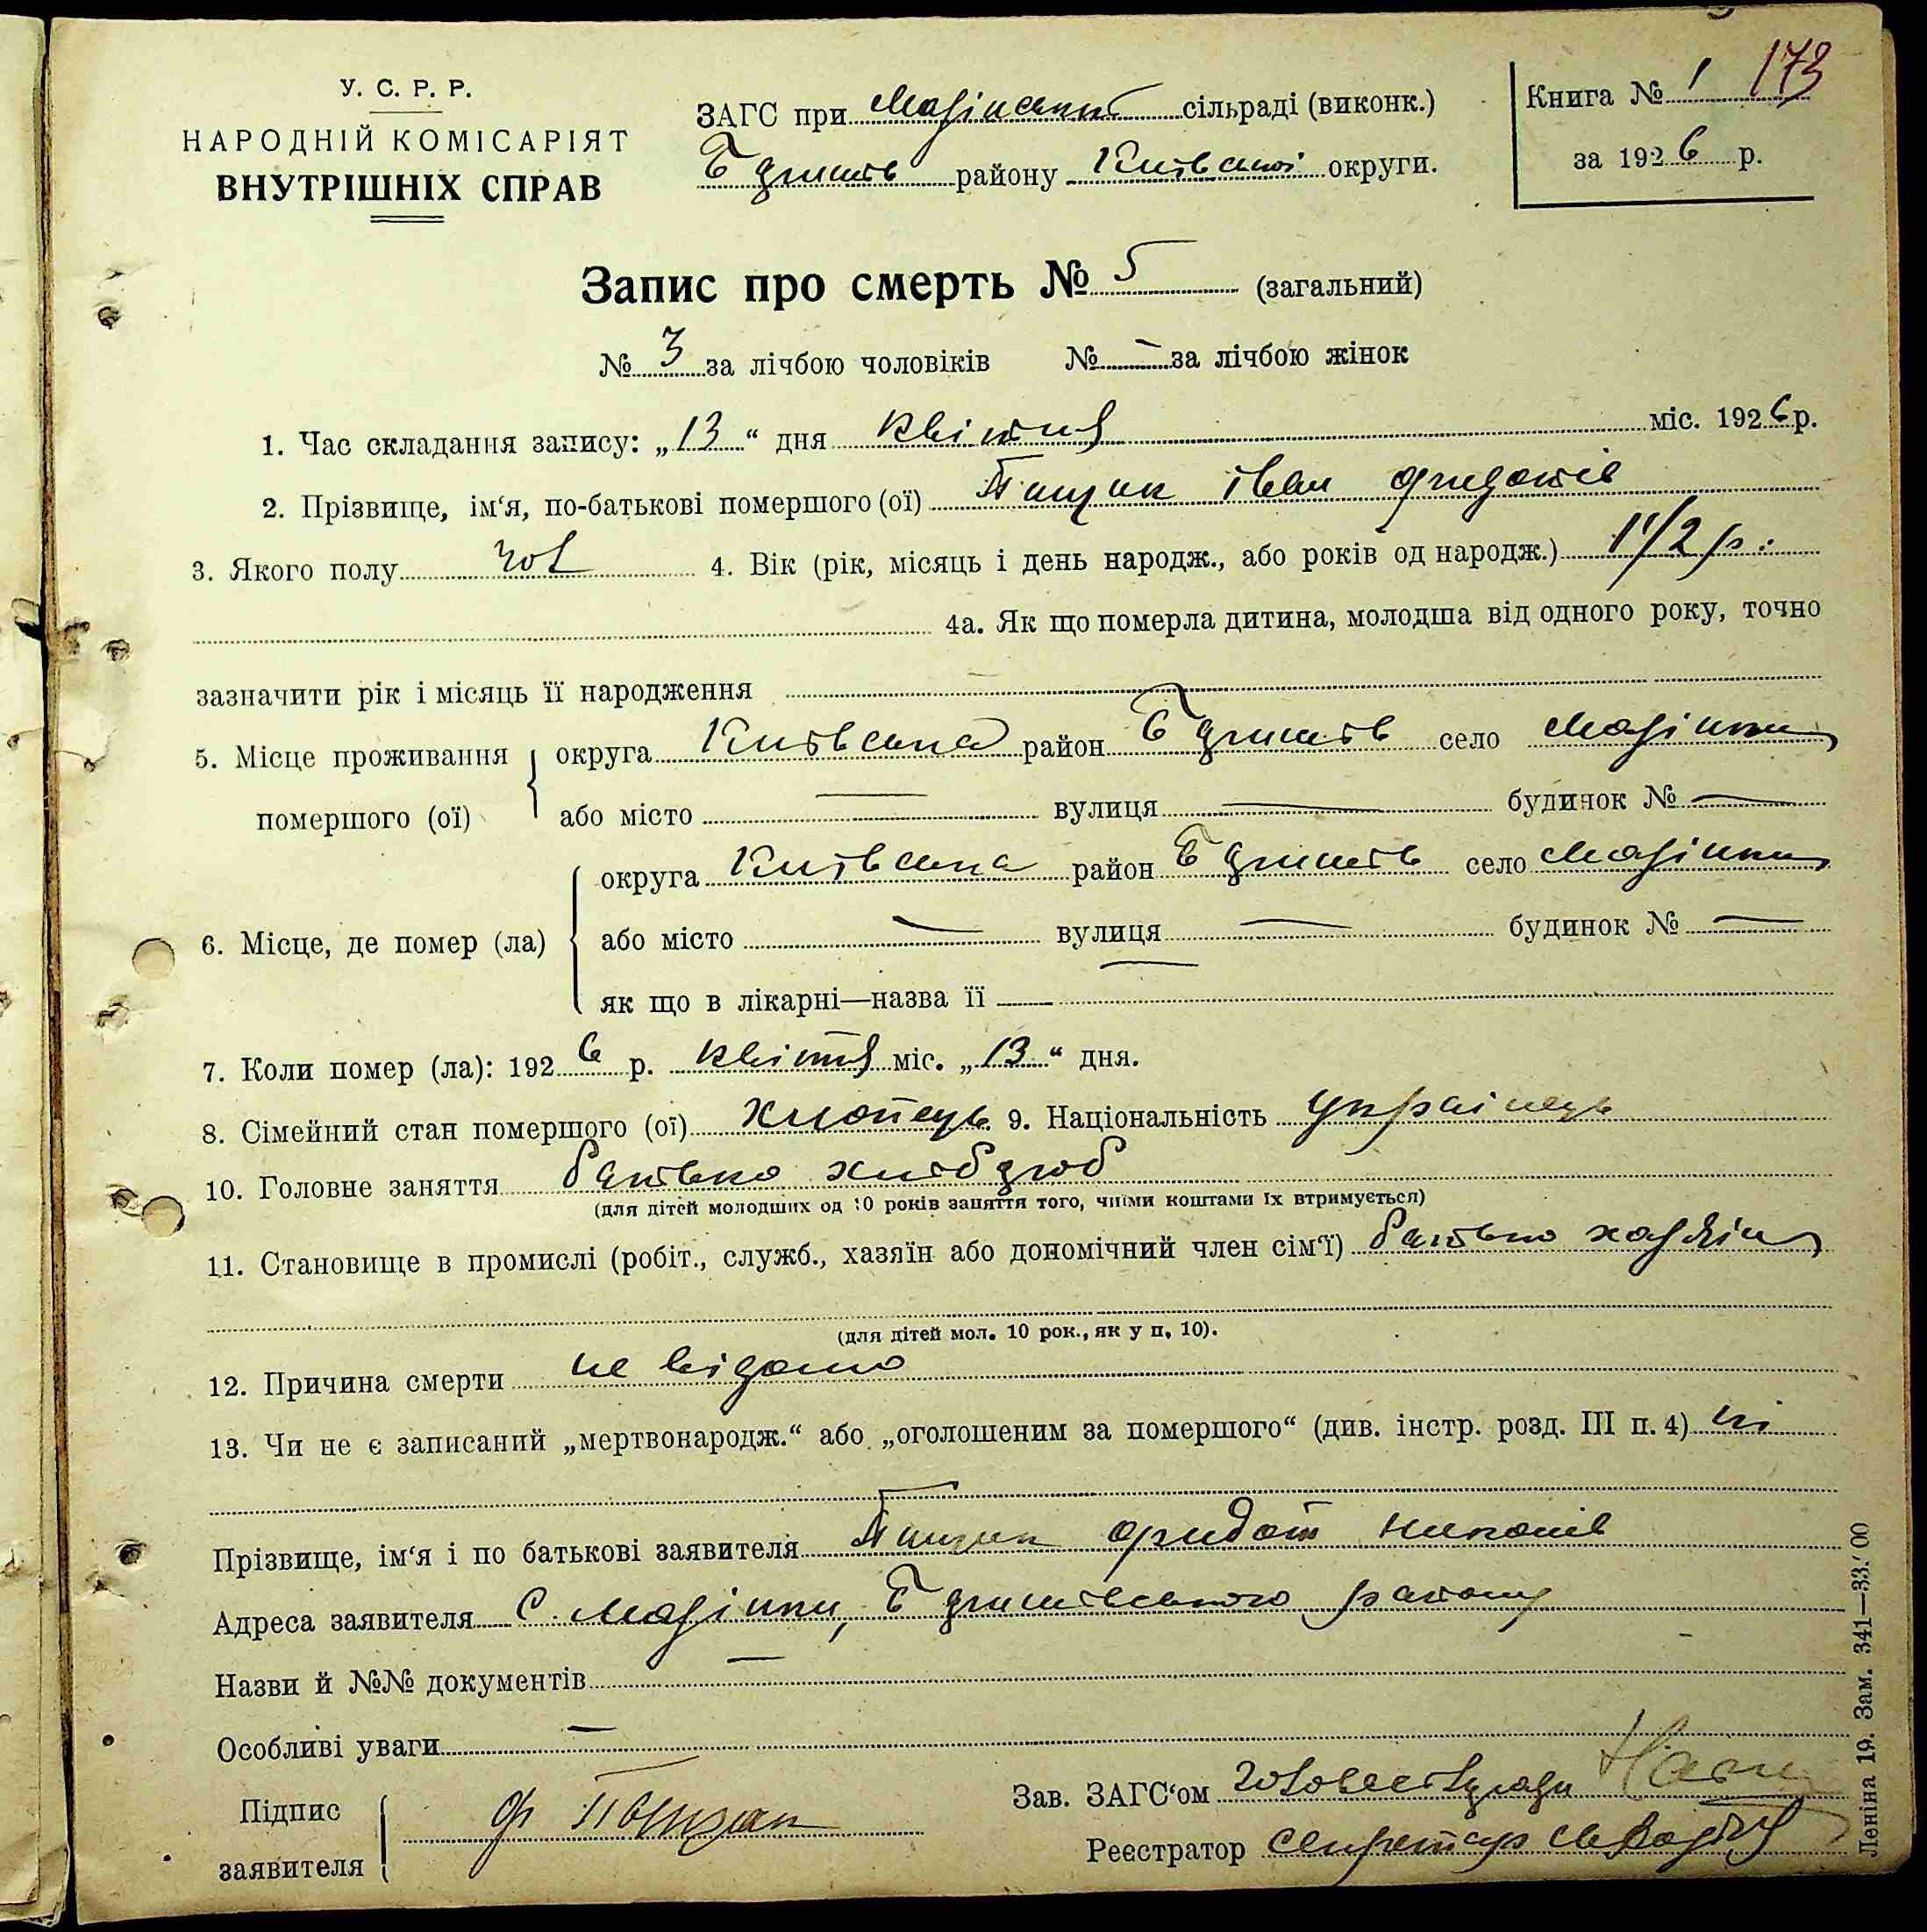 173
У. С. Р. Р.
НАРОДНІЙ КОМІСАРІЯТ
ВНУТРІШНІХ СПРАВ
ЗАГС при сільраді (виконк.)
району Київської округи.
Книга № 1
за 1926 р.
Запис про смерть № 5 (загальний)
№ 3 за лічбою чоловіків № — за лічбою жінок
1. Час складання запису: „13“ дня квітня міс. 1926 р.
2. Прізвище, ім‘я, по-батькові помершого (ої) Іван
3. Якого полу чол 4. Вік (рік, місяць і день народж., або років од народж.) 1 1/2 р.
4а. Як що померла дитина, молодша від одного року, точно
зазначити рік і місяць її народження —
5. Місце проживання помершого (ої) округа Київська район село
або місто — вулиця — будинок № —
6. Місце, де помер (ла) округа Київська район село
або місто — вулиця — будинок № —
як що в лікарні—назва її —
7. Коли помер (ла): 1926 р. квітня міс. „13“ дня.
8. Сімейний стан помершого (ої) хлопець 9. Національність українець
10. Головне заняття батько хлібороб
(для дітей молодших од 10 років заняття того, чиїми коштами їх втримується)
11. Становище в промислі (робіт., служб., хазяїн або допомічний член сім‘ї) батько хазяїн
(для дітей мол. 10 рок., як у п. 10).
12. Причина смерти не відомо
13. Чи не є записаний „мертвонародж.“ або „оголошеним за помершого“ (див. інстр. розд. III п. 4) ні
Прізвище, ім‘я і по батькові заявителя
Адреса заявителя с. району
Назви й №№ документів —
Особливі уваги —
Підпис заявителя
Зав. ЗАГС‘ом
Реєстратор секретар
Леніна 19. Зам. 341—33.‘00